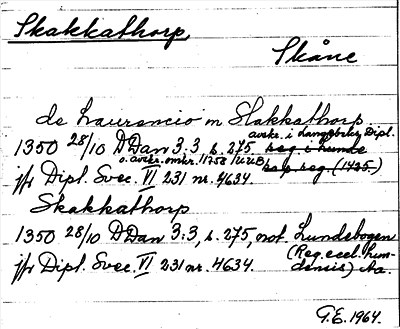 Skakkathorp
Skåne
de Laurencio in Skakkathorp
avskr. i Langebeks Dipl.
1350 28/10 DDan 3:3, s. 275 reg. i Lunde
o. avskr. omkr. 1758 i UUB kap. reg. (1435)
jfr Dipl. Svec. VI 231 nr. 4634.
Skakkathorp
1350 28/10 DDan 3:3, s. 275, not. Lundebogen
(Reg. eccl. Lun-
jfr Dipl. Svec. VI 231 nr. 4634. densis) Aa.
G.E. 1964.